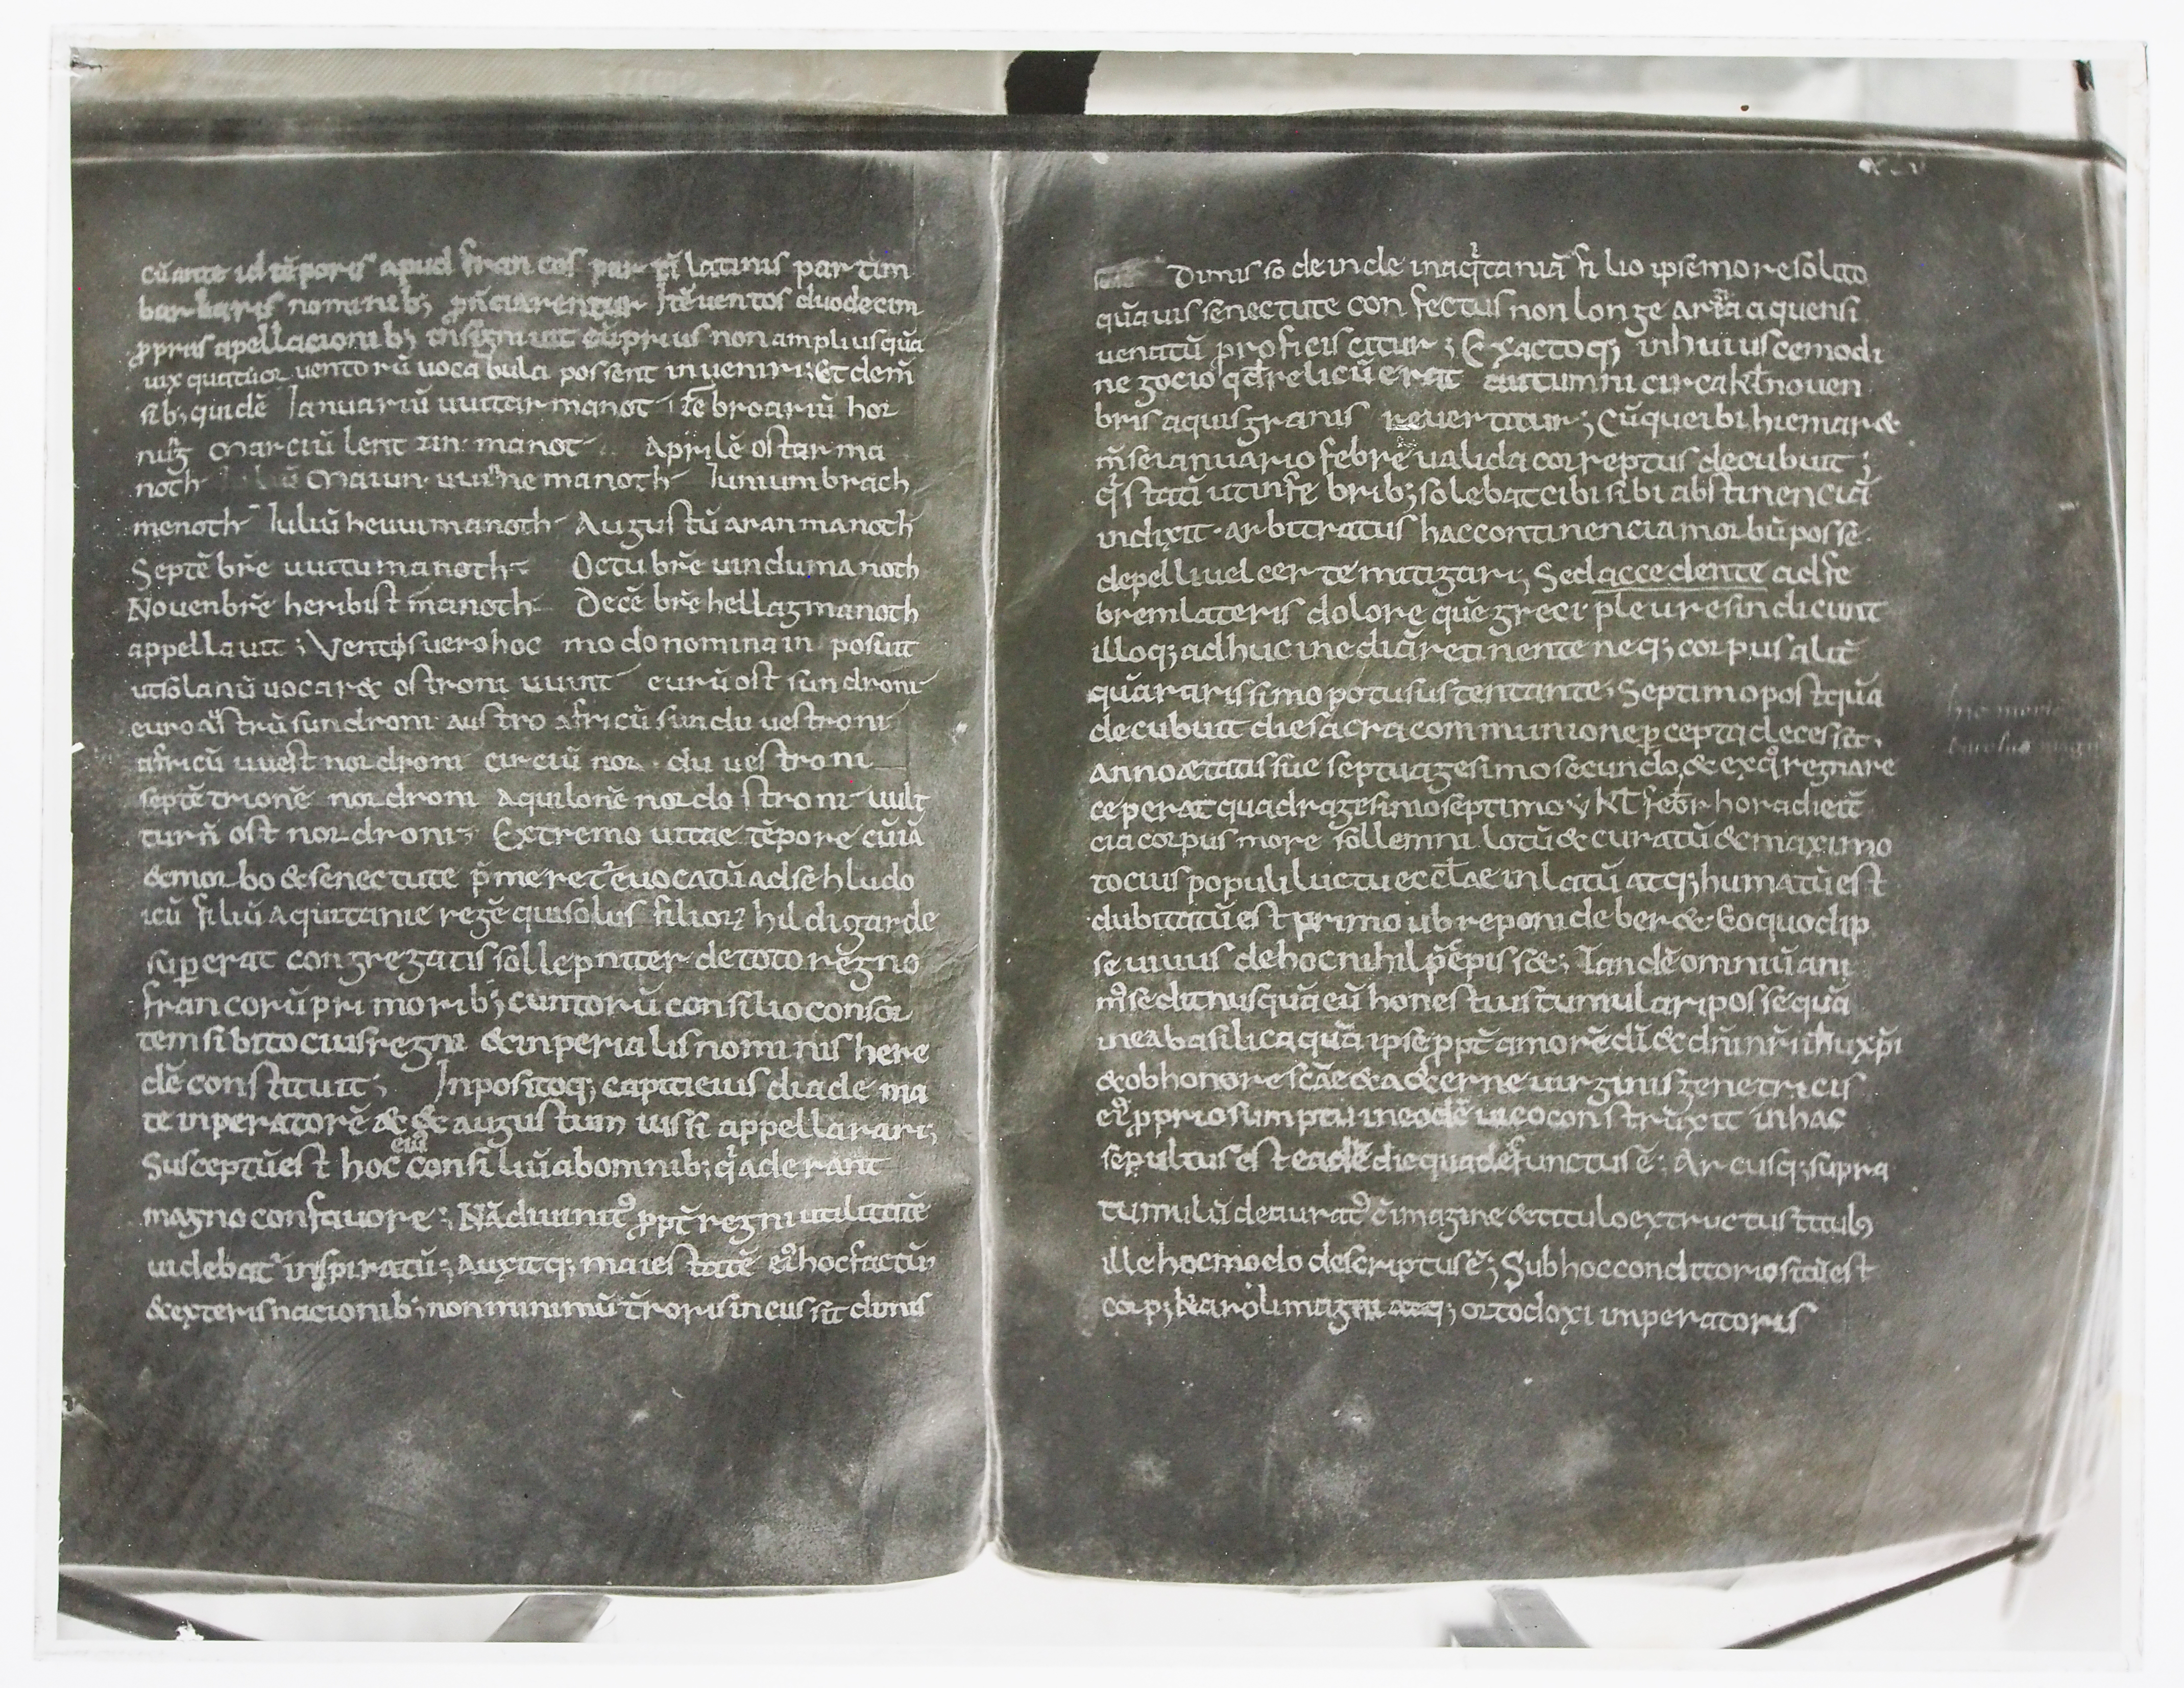 cū ante id tēporis apud francos partī latinis partim
barbaris nominib; p̄nciarentur Itē uentos duodecim
ꝓpriis apellacionib; insigniuit cū prius non amplius quā
uix quattuor uentorū uocabula possent inueniri; Et dem̄
sib; quidē Ianuariū uuintarmanot · febroariū hor
nūg marciū lentzin·manot · Aprilē ostarma
noth maiun·uuinnemanoth Iunium brach
menoth Iuliū heuuimanoth Augustū aranmanoth
Septēbrē uuitumanoth· Octubrē uindumanoth
Nouenbrē heribistmanoth Decēbrē hellagmanoth
appellauit ; Ventos uero hoc modo nomina inposuit
ut solanū uocar& ostroni uuint eurū ost sundroni
euroaustrū sundroni austro africū sundu uestroni
africū uuest nordroni circiū nor·du uestroni
septētrionē nordroni Aquilonē nordostroni uult
turn̄ ost nordroni; Extremo uitae tēpore cū iā
& morbo & senectute p̄meret̄ euocatū ad se hludo
icū filiū aquitanie regē qui solus filioꝝ hildigarde
suꝑerat congregatis sollepniter de toto regno
francorū primorib; cuntorū consilio consor
tem sibi tocius regni & inperialis nominis here
dē constituit; Inpositoq; capiti eius diadema
te inperatorē & & augustum iussi appellarari;
Susceptū est hoc eiā consiliū ab omnib; q̄ aderant
magno con fauore ; Nā diuinit᷒ ꝓpt̄ regni utilitatē
uidebat᷒ inspiratū; Auxitq; maiestatē ei᷒ hoc factū
& exteris nacionib; non minimū t̄roris incussit dimis
xLv
Dimisso deinde in aq̄itaniā filio ipse more solito
quāuis senectute confectus non longe a regia aquensi
uenatū proficiscitur ; Exactoq; in huiuscemodi
negocio qd̄ relicū erat autumni circa kl̄ nouen
bris aquisgranis reuertitur ; Cūque ibi hiemar&
m̄se ianuario febre ualida correptus decubuit ;
q̄ statī ut in febrib; solebat cibi sibi abstinenciā
indixit · arbitratus hac continencia morbū posse
depelli uel certe mitigari; Sed accedente ad fe
brem lateris dolore quē greci pleuresin dicunt
illoq; adhuc inediā retinente neq; corpus alit̄
quā rarissimo potu sustentante; Septimo postquā
decubuit die sacra communione ꝑcepta decessit,
anno ætatis sue septuagesimo secundo & ex q᷒ regnare
ceperat quadragesimo septimo v kl̄ febr hora diei t̄
cia corpus more sollemni lotū & curatū & maximo
tocius populi luctu eccl̄ae inlatū atq; humatū est
dubitatū est primo ubi reponi deber& · Eo quod ip
se uiuus de hoc nihil p̄cepiss&; Tandē omniū ani
m᷒ sedit nusquā eū honestius tumulari posse quā
in ea basilica quā ipse ꝓpt̄ amorē dī & dn̄i nr̄i ihu xp̄i
& ob honore scāe & aeterne uirginis genetricis
ei᷒ ꝓprio sumptu in eodē uico construxit in hac
sepultus est eadē die qua defunctus ē; Arcusq; supra
tumulū deaurat᷒ cū imagine & titulo extructus titul᷒
ille hoc modo descriptus ē; Sub hoc conditorio sitū est
corp; karoli magni atq; ortodoxi imperatoris
hic